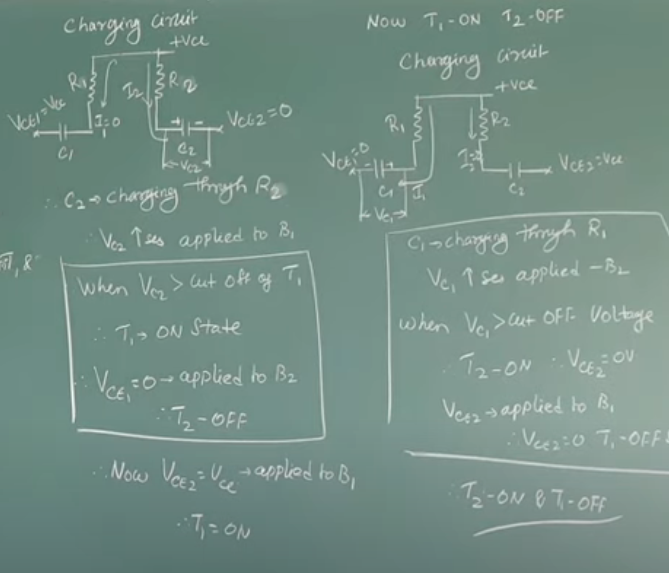 Charging circuit
+Vcc
R1
R2
I2
VCE1=Vcc
I1=0
VCE2=0
C1
C2
VC2
∴ C2→ charging through R2
∴ VC2 ↑ses applied to B1
When VC2 > cut off of T1
∴ T1→ ON State
∴ VCE1=0→ applied to B2
∴ T2-OFF
∴ Now VCE2=Vcc→applied to B1
∴ T1=ON
Now T1-ON T2-OFF
Charging circuit
+Vcc
R1
R2
VCE1=0
I2=0
VCE2=Vcc
C1
I1
C2
VC1
C1→charging through R1
VC1 ↑ses applied -B2
when VC1>cut OFF Voltage
∴ T2-ON ∴ VCE2=0V
VCE2→applied to B1
∴ VCE2=0 T1-OFF
∴ T2-ON & T1-OFF